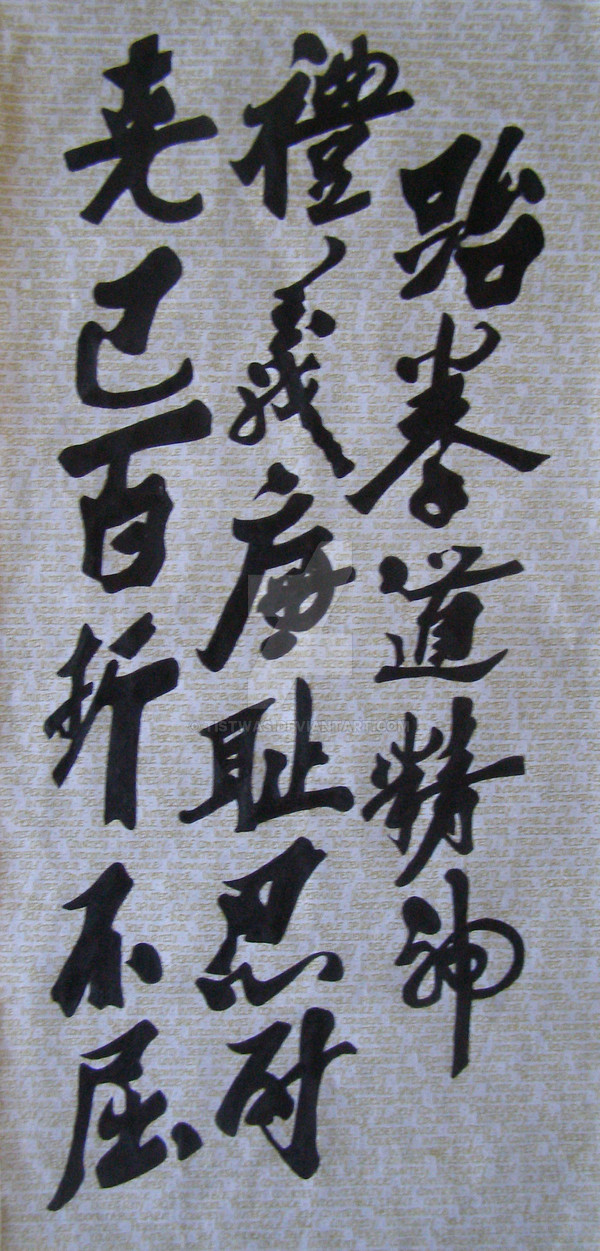 跆拳道精神
禮義廉耻忍耐
克己百折不屈
TISTWAS.DEVIANTART.COM